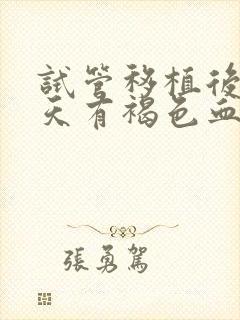 試管移植後
天有褐色血
張勇駕